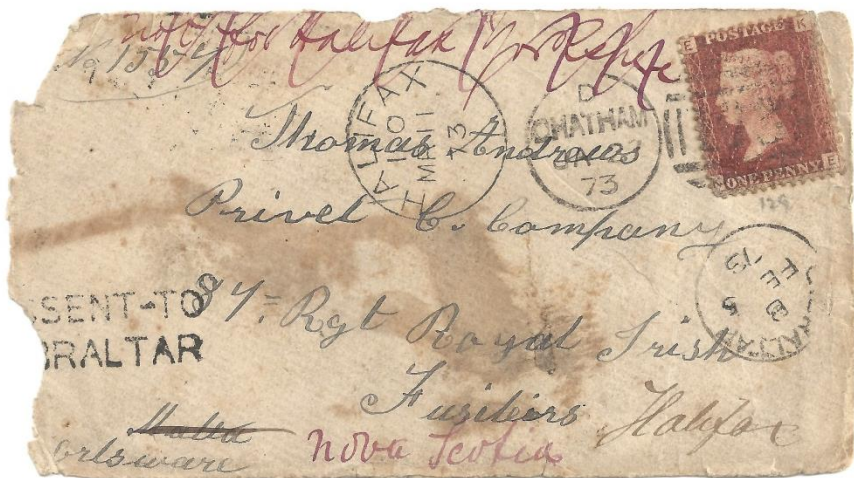 not for Halifax Yorkshire
No 1554
E POSTAGE K
ONE PENNY E
129
HALIFAX
10
MR 11
73
D
CHATHAM
73
Thomas Andrews
Privet C. Company
87. Rgt Royal Irish
Fusiliers Halifax
SSENT-TO
BRALTAR
GIBRALTAR
FEB 5
73
Malta
Nova Scotia